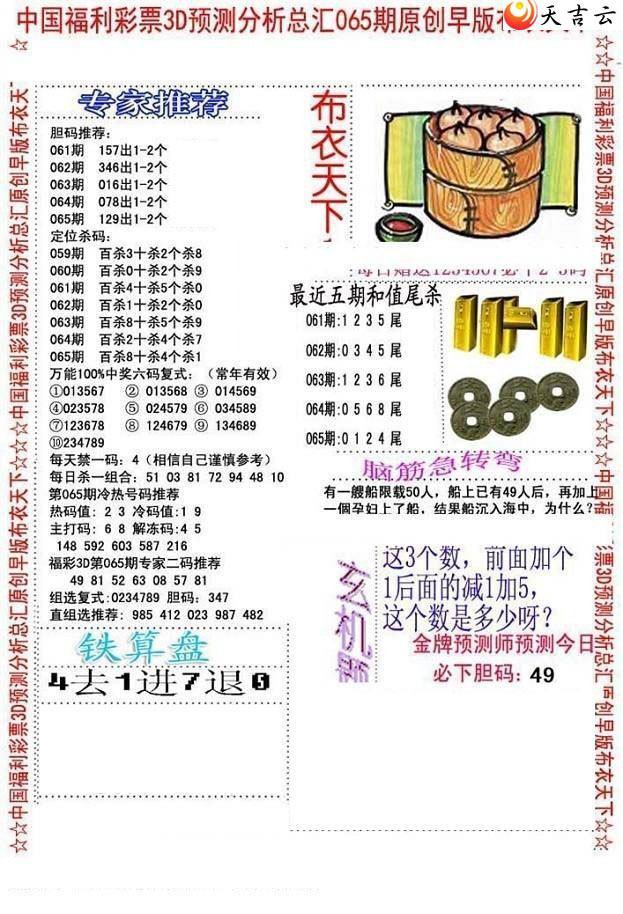 中国福利彩票3D预测分析总汇065期原创早版布衣天下
天吉云
专家推荐
胆码推荐:
061期 157出1-2个
062期 346出1-2个
063期 016出1-2个
064期 078出1-2个
065期 129出1-2个
定位杀码:
059期 百杀3十杀2个杀8
060期 百杀0十杀2个杀9
061期 百杀4十杀5个杀0
062期 百杀1十杀2个杀0
063期 百杀8十杀5个杀9
064期 百杀2十杀4个杀7
065期 百杀8十杀4个杀1
万能100%中奖六码复式: (常年有效)
①013567 ② 013568 ③ 014569
④023578 ⑤ 024579 ⑥ 034589
⑦123678 ⑧ 124679 ⑨ 134689
⑩234789
每天禁一码: 4 (相信自己谨慎参考)
每日杀一组合: 51 03 81 72 94 48 10
第065期冷热号码推荐
热码值: 2 3 冷码值:1 9
主打码: 6 8 解冻码:4 5
148 592 603 587 216
福彩3D第065期专家二码推荐
49 81 52 63 08 57 81
组选复式:0234789 胆码: 347
直组选推荐: 985 412 023 987 482
铁算盘
4去1进7退0
布衣天下
每日赠送1234567必下2-3码
最近五期和值尾杀
061期:1 2 3 5 尾
062期:0 3 4 5 尾
063期:1 2 3 6 尾
064期:0 5 6 8 尾
065期:0 1 2 4 尾
脑筋急转弯
有一艘船限载50人, 船上已有49人后, 再加上
一個孕妇上了船, 结果船沉入海中, 为什么?
玄机
这3个数, 前面加个
1后面的减1加5,
这个数是多少呀?
金牌预测师预测今日
必下胆码: 49
☆☆中国福利彩票3D预测分析总汇原创早版布衣天下☆☆☆中国福利彩票3D预测分析总汇原创早版布衣天
☆☆中国福利彩票3D预测分析总汇原创早版布衣天下☆☆☆中国福
票3D预测分析总汇原创早版布衣天下☆☆